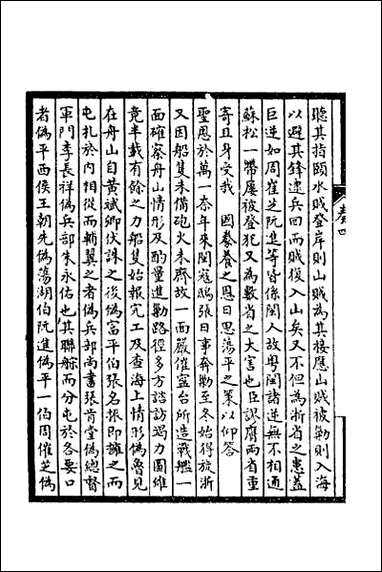 聽其指顧水賊登岸則山賊為其接應山賊被勦則入海
以避其鋒逮兵回而賊復入山矣又不但為浙省之患蓋
巨逆如周崔芝阮進等皆係閩人故粤閩諸逆無不相通
蘇松一帶屢被登犯又為數省之大害也臣謬膺兩省重
寄且身受我 國眷養之恩日思蕩平之策以仰答
聖恩於萬一奈年來閩寇鴟張日事奔勦至冬始得旅浙
又因船隻未備砲火未齊故一面嚴催寧台所造戰艦一
面確察舟山情形及酌量進勦路徑多方諮訪竭力圖維
竟半載有餘之力船隻始報完工及查海上情形偽魯見
在舟山自黃斌卿伏誅之後偽富平伯張名振即擁之而
屯扎於內相從而輔翼之者偽兵部尚書張肯堂偽總督
軍門李長祥偽兵部朱永佑也其聯䑸而分屯於各要口
者偽平西侯王朝先偽蕩湖伯阮進偽平一伯周崔芝偽
卷四